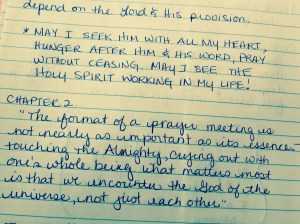 depend on the Lord & His provision.
* MAY I SEEK HIM WITH ALL MY HEART,
HUNGER AFTER HIM & HIS WORD, PRAY
WITHOUT CEASING. MAY I SEE THE
HOLY SPIRIT WORKING IN MY LIFE!
CHAPTER 2
"The format of a prayer meeting is
not nearly as important as its essence-
touching the Almighty, crying out with
one's whole being. What matters most
is that we encounter the God of the
universe, not just each other"